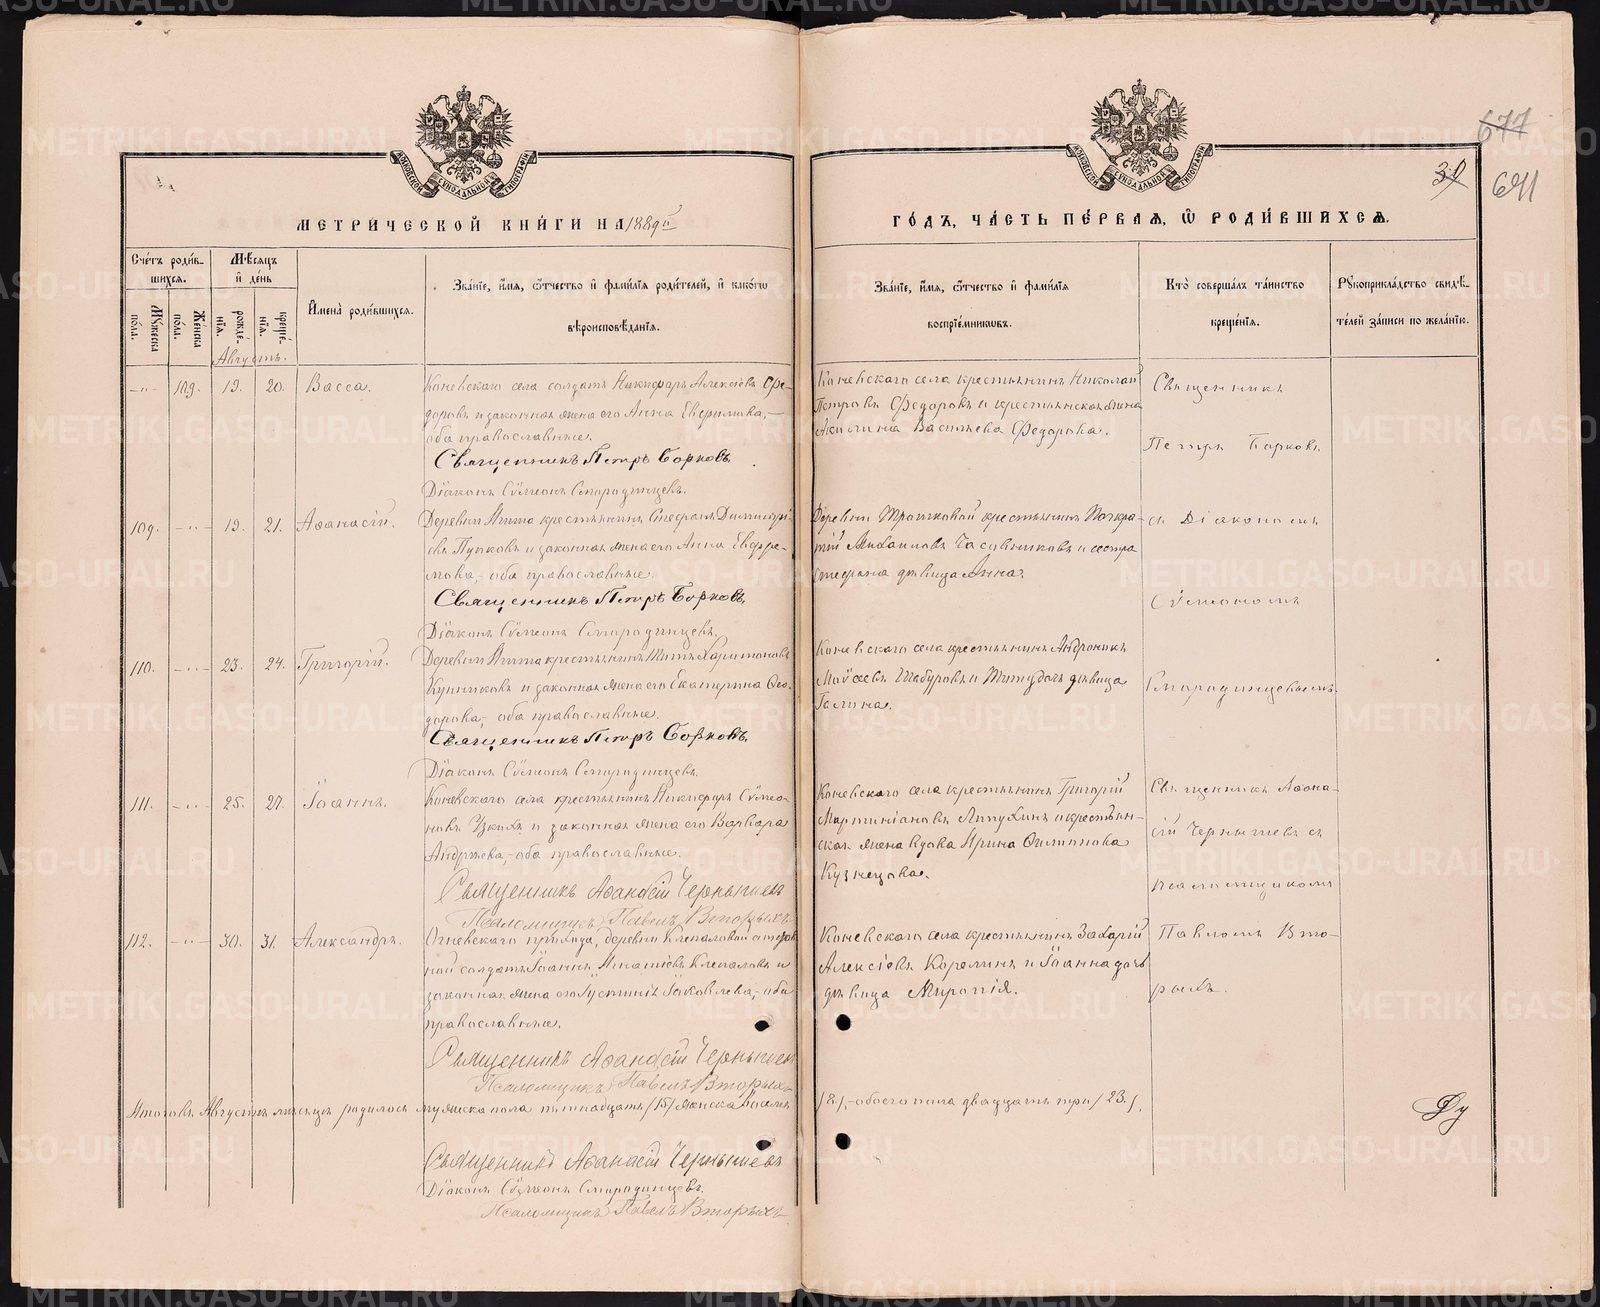 МЕТРИЧЕСКОЙ КНИГИ НА 1889й
Счетъ родив-
шихся.
Мѣсяцъ
и день
Мужеска
пола.
Женска
пола.
рожде-
нія.
креще-
нія.
Имена родившихся.
Званіе, имя, отчество и фамилія родителей, и какого
вѣроисповѣданія.
Августъ.
-"- 109. 19. 20. Васса.
Коневскаго села солдатъ Никифоръ Алексіевъ Ѳе-
доровъ и законная жена его Анна Евфимова,-
оба православные.
Священникъ Петръ Борковъ.
Діаконъ Сѵмеонъ Смородинцевъ.
109. -"- 19. 21. Аѳанасій.
Деревни Ниша крестьянинъ Стефанъ Димитрі-
евъ Пупковъ и законная жена его Анна Евфре-
мова,- оба православные.
Священникъ Петръ Борковъ.
Діаконъ Сѵмеонъ Смородинцевъ.
110. -"- 23. 24. Григорій.
Деревни Ниша крестьянинъ Титъ Харитоновъ
и законная жена его Екатерина Ѳео-
дорова,- оба православные.
Священникъ Петръ Борковъ.
Діаконъ Сѵмеонъ Смородинцевъ.
111. -"- 25. 27. Іоаннъ.
Коневскаго села крестьянинъ Никифоръ Сѵмео-
новъ Узкихъ и законная жена его Варвара
Андреева,- оба православные.
Священникъ Аѳанасій Чернышевъ
Псаломщикъ Павелъ Вторыхъ
112. -"- 30. 31. Александръ.
Огневскаго прихода, деревни Клепаловой
солдатъ Іоаннъ Игнатіевъ Клепаловъ и
законная жена его Іустинія Іаковлева,- оба
православные.
Священникъ Аѳанасій Чернышевъ
Псаломщикъ Павелъ Вторыхъ
Итого въ Августѣ мѣсяцѣ родилось мужеска пола пятнадцать /15/ женска восемь
Священникъ Аѳанасій Чернышевъ
Діаконъ Сѵмеонъ Смородинцевъ.
Псаломщикъ Павелъ Вторыхъ
677
30
641
ГОДЪ, ЧАСТЬ ПЕРВАЯ, Ѡ РОДИВШИХСЯ.
Званіе, имя, отчество и фамилія
воспріемниковъ.
Кто совершалъ таинство
крещенія.
Рукоприкладство свидѣ-
телей записи по желанію.
Коневскаго села крестьянинъ Николай
Петровъ Ѳедоровъ и крестьянская жена
Акилина Васильева Ѳедорова.
Священникъ
Петръ Борковъ
Деревни Трошковой крестьянинъ Панкра-
тій Михаиловъ Часовниковъ и сестра
Стефана дѣвица Анна.
съ Діакономъ
Сѵмеономъ
Коневскаго села крестьянинъ Андроникъ
Моѵсеевъ Шабуровъ и Тита дочь дѣвица
Галина.
Смородинцевымъ.
Коневскаго села крестьянинъ Григорій
Мартиніановъ Липухинъ и крестьян-
ская жена вдова Ирина Филиппова
Кузнецова.
Священникъ Аѳана-
сій Чернышевъ съ
псаломщикомъ
Коневскаго села крестьянинъ Захарій
Алексіевъ Корелинъ и Іоанна дочь
дѣвица Миропія.
Павломъ Вто-
рыхъ.
/8/,- обоего пола двадцать три /23/.